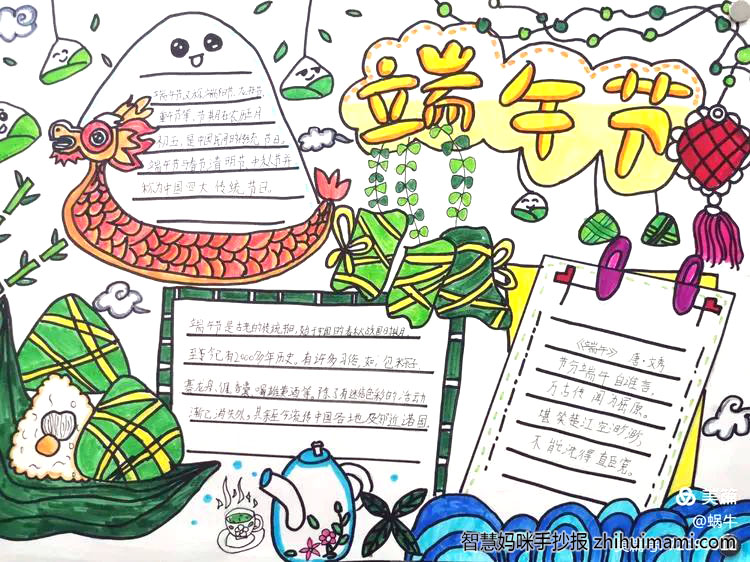 端午节
端午节又称端阳节、龙舟节
重午节等,节期在农历五月
初五,是中国民间的传统节日。
端午节与春节、清明节、中秋节并
称为中国四大传统节日。
端午节是古老的传统节日,始于中国的春秋战国时期
至今已有2500多年历史。有许多习俗,如:包粽子
赛龙舟、
挂香囊、喝雄黄酒等,除了有迷信色彩的活动
渐已消失外,其余至今流传中国各地及邻近诸国。
《端午》 唐·文秀
节分端午自谁言,
万古传闻为屈原。
堪笑楚江空渺渺,
不能洗得直臣冤。
美篇
@蜗牛
智慧妈咪手抄报 zhihuimami.com